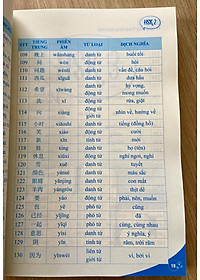 HSK 2
STT TIẾNG TRUNG PHIÊN ÂM TỪ LOẠI DỊCH NGHĨA
108 晚上 wǎnshang danh từ buổi tối
109 问 wèn động từ hỏi
110 问题 wèntí danh từ vấn đề, câu hỏi
111 西瓜 xīguā danh từ dưa hấu
112 希望 xīwàng danh từ hy vọng, mong muốn
113 洗 xǐ động từ rửa, giặt
114 向 xiàng giới từ nhìn về, hướng về
115 小时 xiǎoshí danh từ tiếng (đồng hồ)
116 笑 xiào động từ cười
117 新 xīn tính từ mới
118 姓 xìng danh từ họ (tên)
119 休息 xiūxi động từ nghỉ ngơi, nghỉ
120 雪 xuě danh từ tuyết
121 颜色 yánsè danh từ màu sắc
122 眼睛 yǎnjing danh từ con mắt
123 羊肉 yángròu danh từ thịt dê
124 要 yào động từ phải, nên, muốn
125 也 yě phó từ cũng
126 已经 yǐjīng phó từ đã
127 一起 yìqǐ phó từ cùng, cùng nhau
128 意思 yìsi danh từ ý, ý nghĩa
129 阴 yīn tính từ râm, trời râm
130 因为 yīnwèi liên từ vì, bởi vì